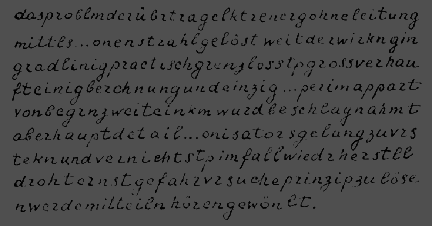 dasproblmderübrtragelktrenergohneleitung
mittls...onenstrahlgelöstweitderwirkngin
gradlinigpractischgrenzlosstpgrossverhau
fteinigberchnungundeinzig...perimappart
vonbegrnzweiteinkmwurdbeschlagnahmt
aberhauptdetail...onisatorsgelungzuvrs
teknundvernichtstpimfallwiedrherstll
drohternstgefahrvrsucheprinzipzulöse
nwerdemitteilnhörengewönlt.